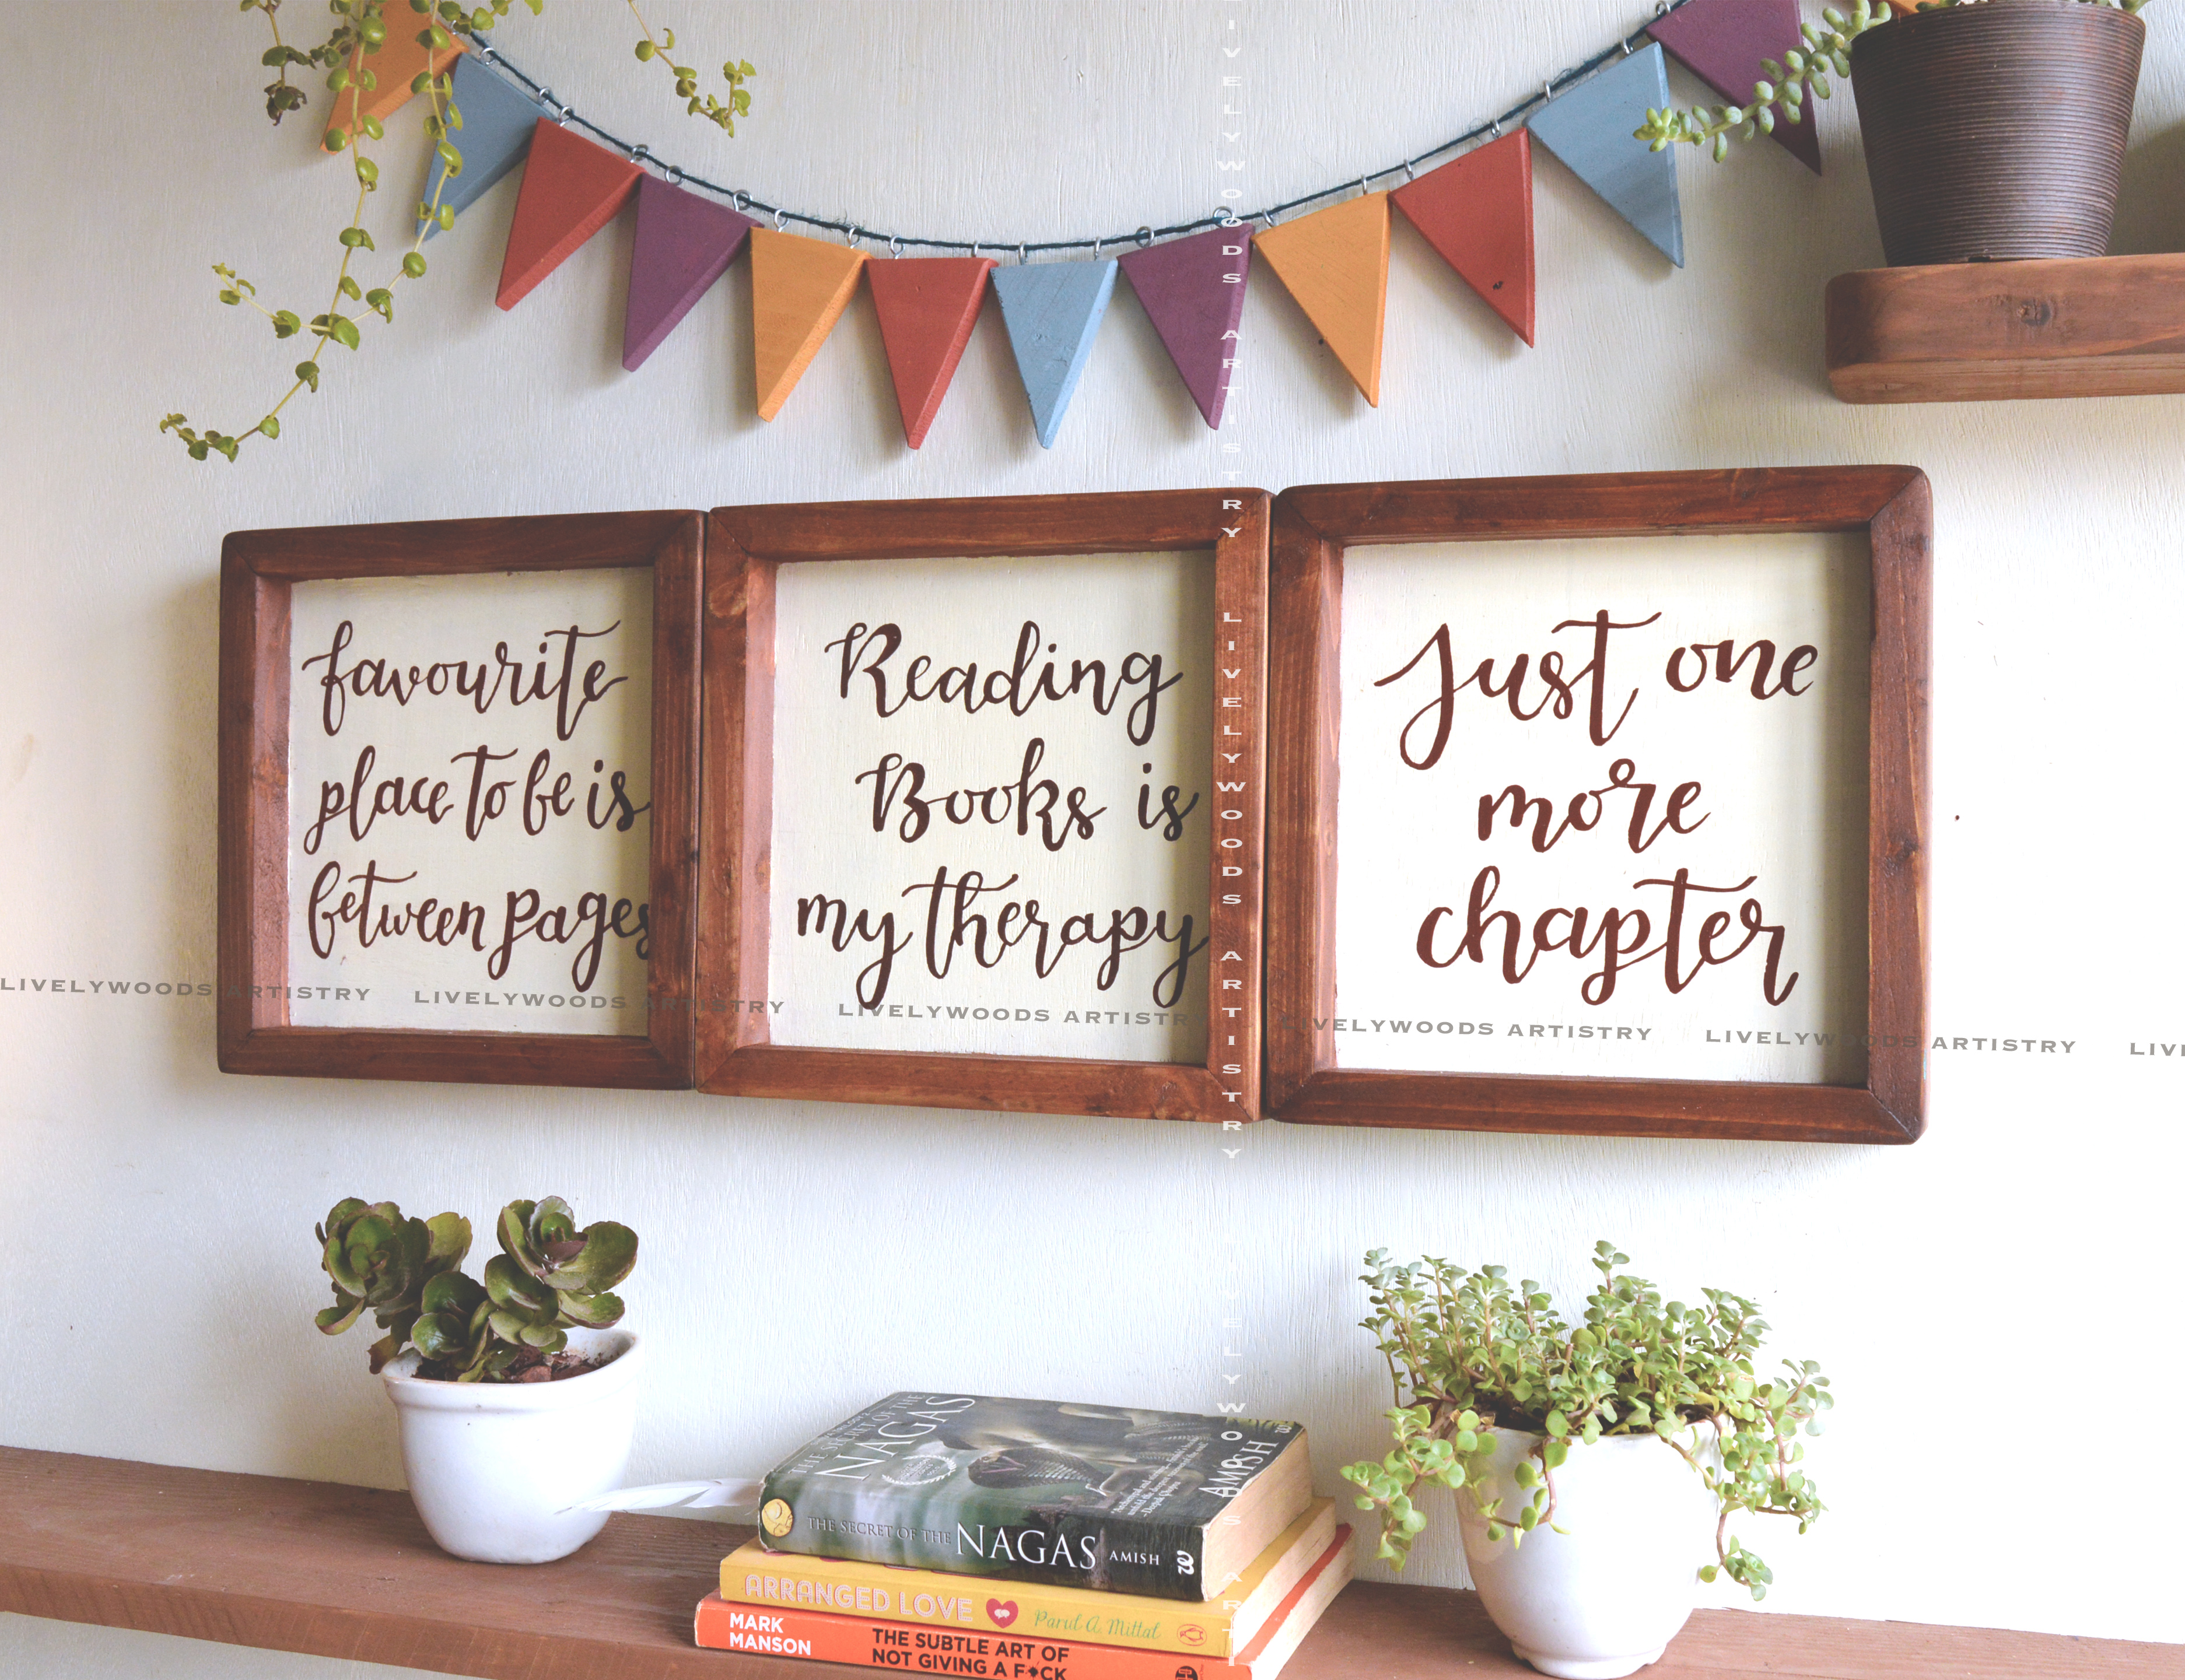 favourite
place to be is
between pages
Reading
Books is
my therapy
Just one
more
chapter
LIVELYWOODS ARTISTRY LIVELYWOODS ARTISTRY LIVELYWOODS ARTISTR LIVELYWOODS ARTISTRY LIVELYWOODS ARTISTRY LIVE
LIVELYWOODS ARTISTRY LIVELYWOODS ARTISTRY LIVELYWOODS ART
THE SECRET OF THE
NAGAS
AMISH
THE SECRET OF THE NAGAS AMISH
ARRANGED LOVE Parul A. Mittal
MARK
MANSON
THE SUBTLE ART OF
NOT GIVING A F*CK